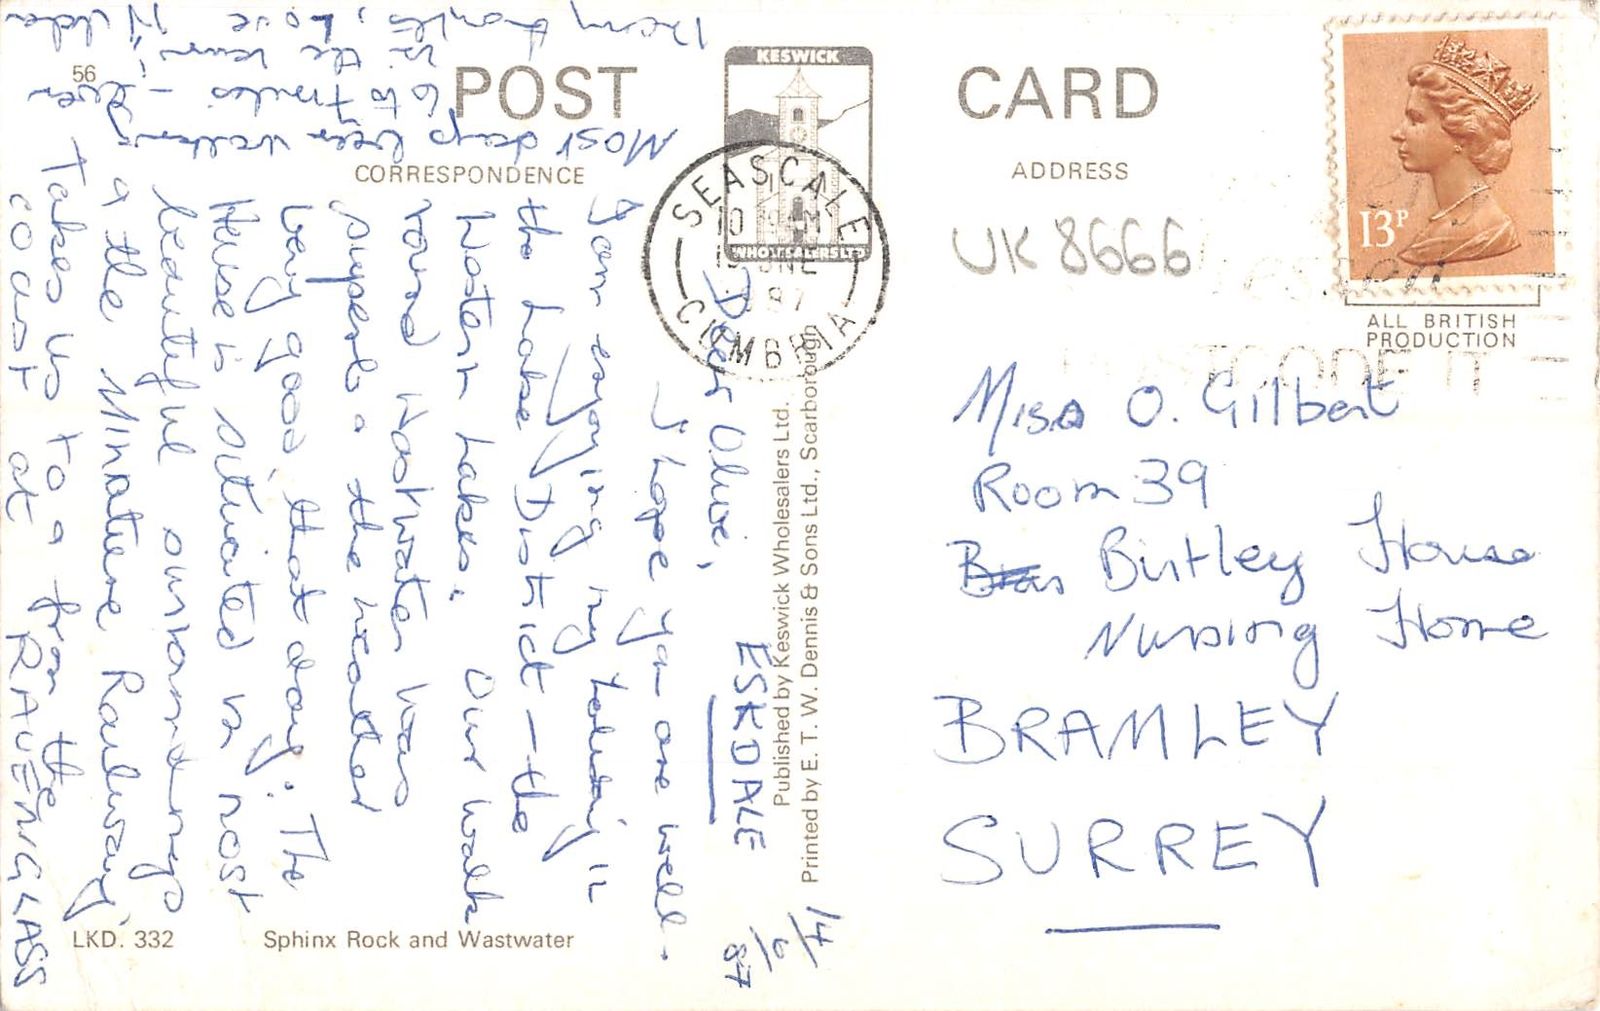 56
POST CARD
KESWICK
WHOLESALERS LTD
CORRESPONDENCE
ADDRESS
SEASCALE
CUMBRIA
10
JNE
87
13P
UK 8666
ALL BRITISH
PRODUCTION
POSTCODE IT
ESKDALE
14/6/87
Dear Olive,
I hope you are well.
I am enjoying my holiday in
the Lake District – the
Western Lakes. Our walk
round Wastwater was
superb & the weather
very good, that day. The
House is situated in most
beautiful surroundings
& the Minature Railway,
Takes us to & from the
coast at RAVENGLASS
Most days been walking
6 to 7 miles – even
in the rain!
Many thanks, Love Hilda
Miss O. Gilbert
Room 39
Birtley House
Nursing Home
BRAMLEY
SURREY
Published by Keswick Wholesalers Ltd.
Printed by E. T. W. Dennis & Sons Ltd., Scarborough
LKD. 332
Sphinx Rock and Wastwater